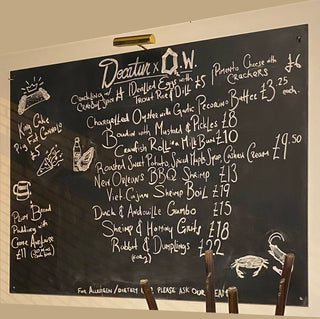 Decatur x Q.W.
Crackling w/ Cranberry
Devilled Eggs with £5
Trout Roe & Dill
Pimento Cheese with £6
Crackers
Chargrilled Oyster with Garlic Pecorino Butter £3.25 each.
Boudin with Mustard & Pickles £8
Crawfish Roll in a Milk Bun £10
Roasted Sweet Potato, Spiced Maple Syrup, Cashew Cream £9.50
New Orleans BBQ Shrimp £13
Viet Cajun Shrimp Boil £19
Duck & Andouille Gumbo £15
Shrimp & Hominy Grits £18
Rabbit & Dumplings £22
King Cake
Pig Fat Cannolo
£5
Plum Bread
Pudding with
Creme Anglaise
£11
For Allergen/Dietary please ask our team